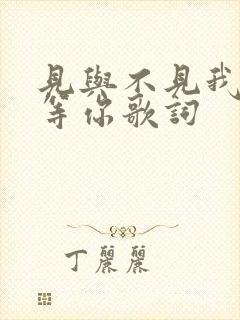 見與不見我
等你歌詞
丁麗麗